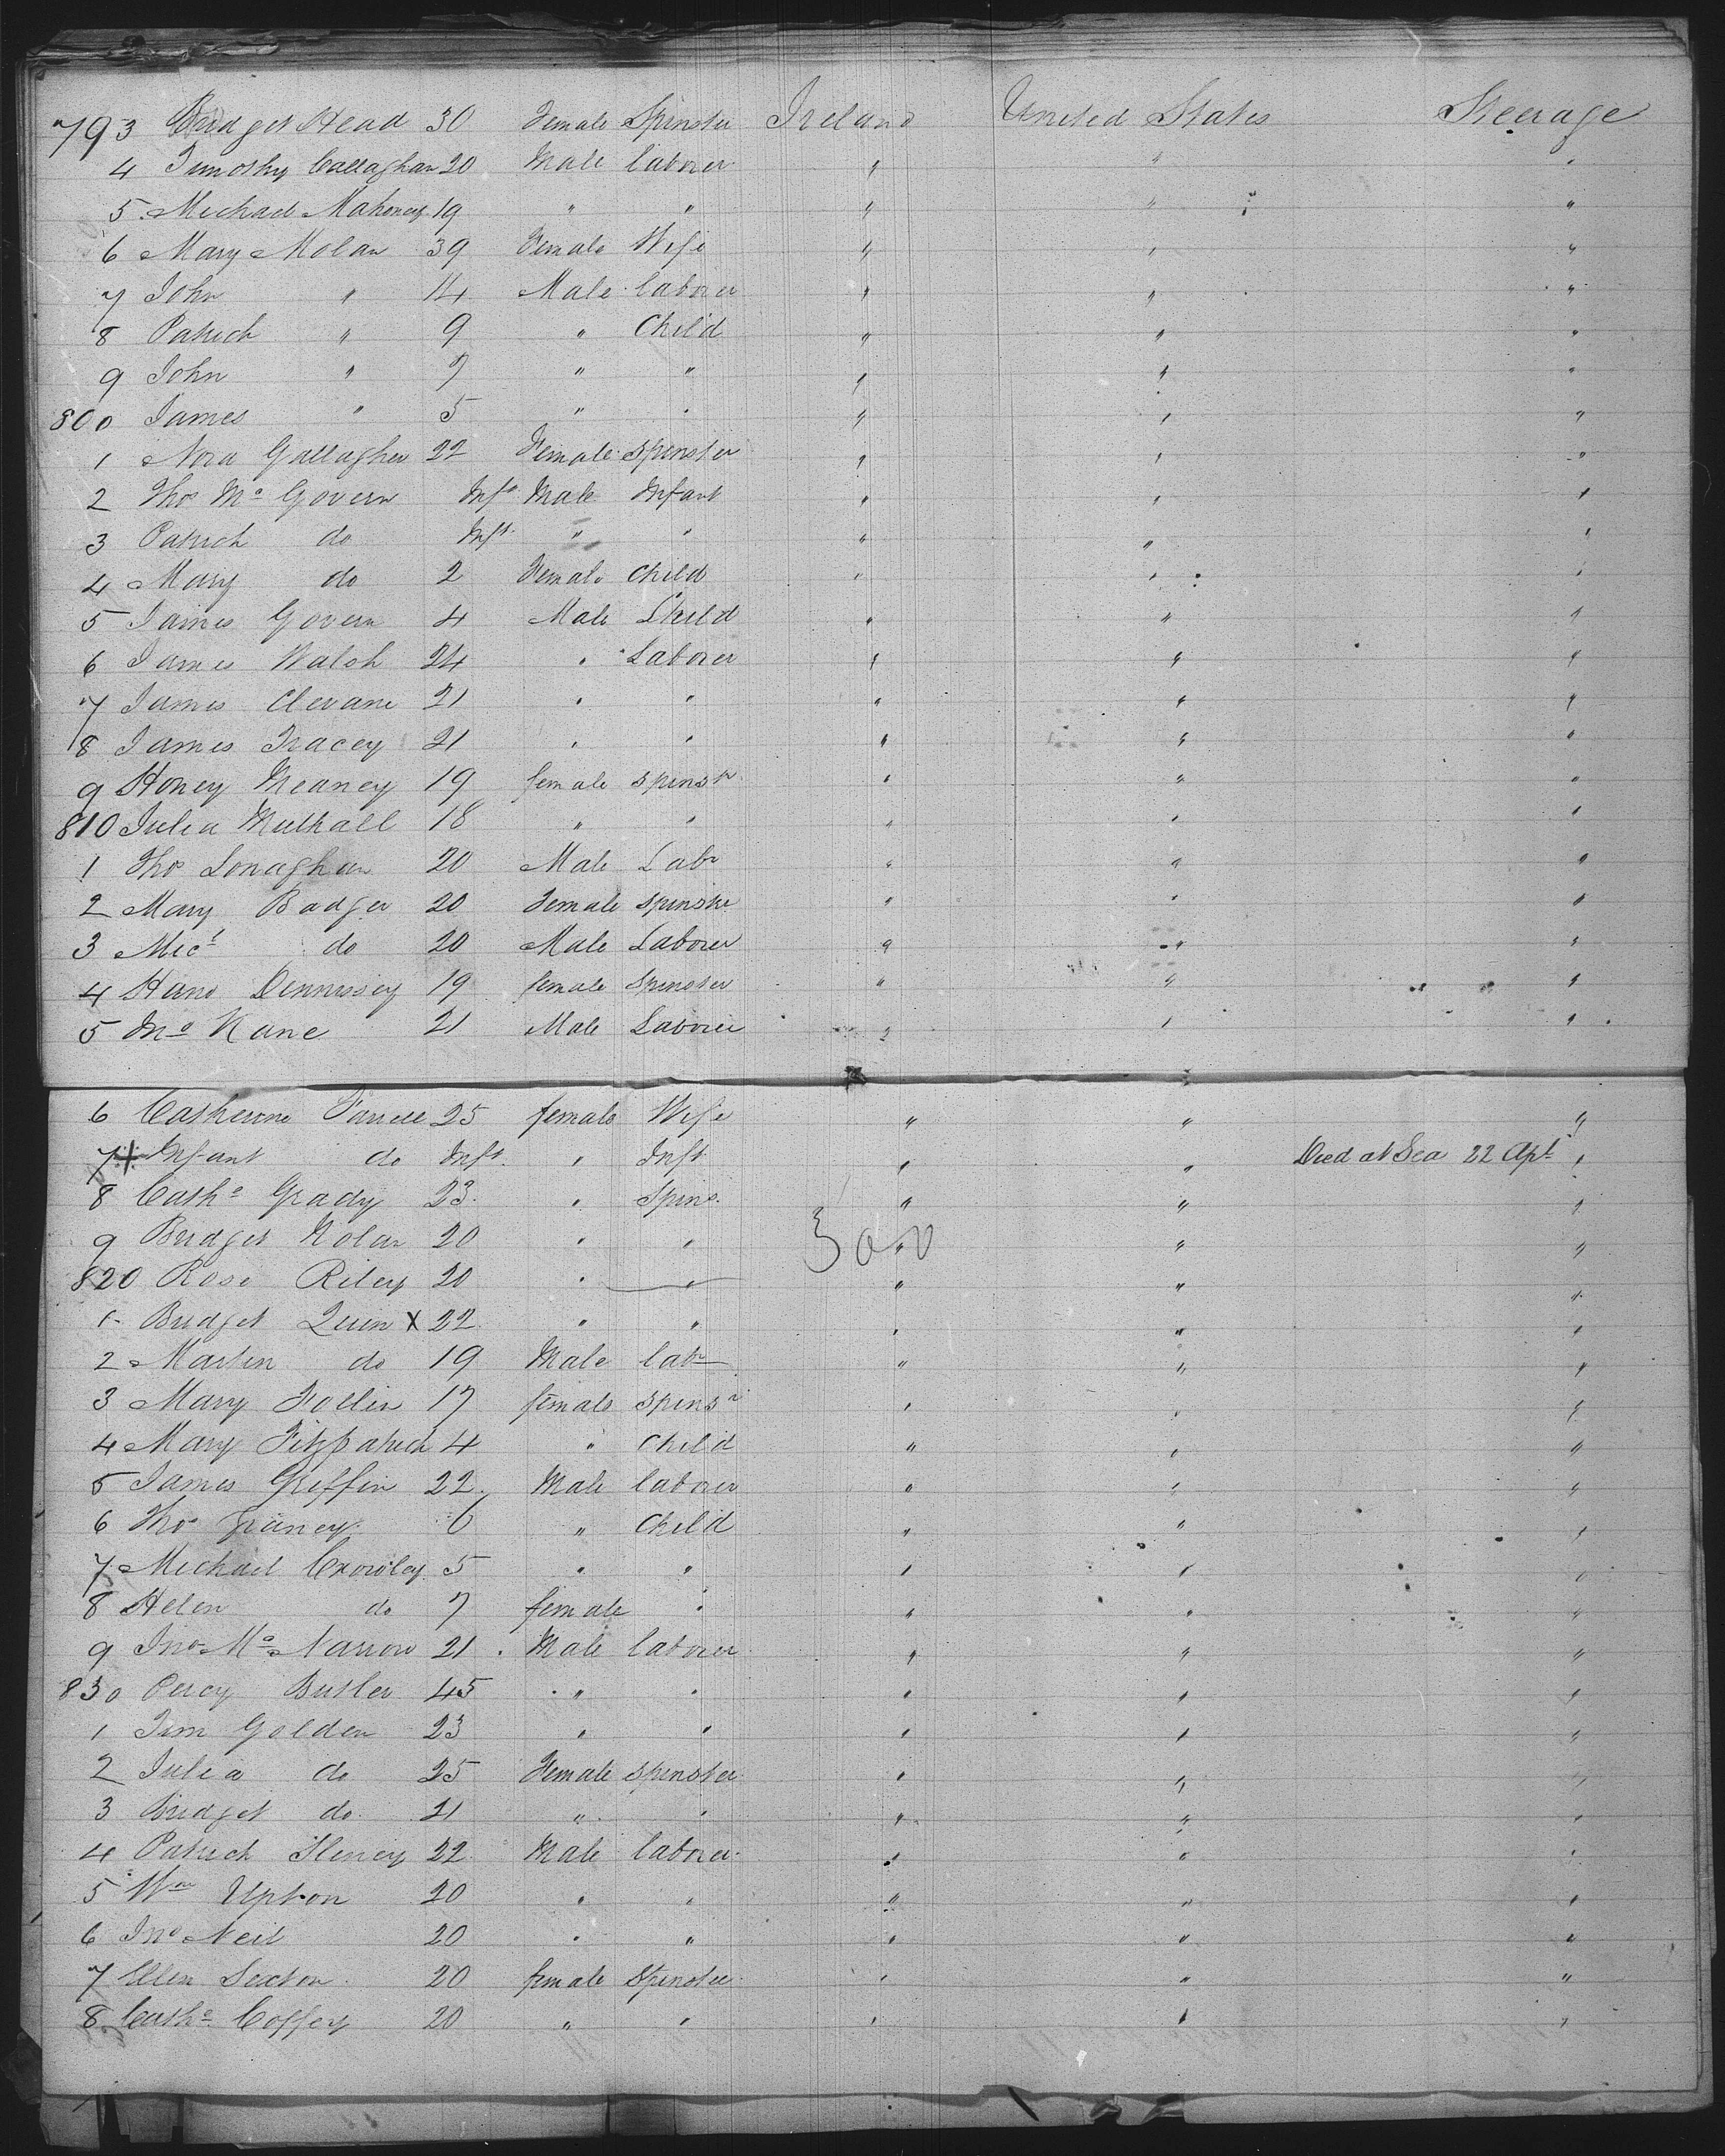 793 Bridget Head 30 Female Spinster Ireland United States Steerage
4 Timothy Callaghan 20 Male laborer " " "
5 Michael Mahoney 19 " " " " "
6 Mary Molan 39 Female Wife " " "
7 John " 14 Male laborer " " "
8 Patrick " 9 " Child " " "
9 John " 7 " " " " "
800 James " 5 " " " " "
1 Nora Gallagher 22 Female Spinster " " "
2 Thos Mc Govern Inft Male Infant " " "
3 Patrick do Inft " " " " "
4 Mary do 2 Female Child " " "
5 James Govern 4 Male Child " " "
6 James Walsh 24 " Laborer " " "
7 James Clevane 21 " " " " "
8 James Tracey 21 " " " " "
9 Honey Meaney 19 female spinsr " " "
810 Julia Mulhall 18 " " " " "
1 Thos Lonaghan 20 Male Labr " " "
2 Mary Badger 20 Female Spinster " " "
3 Micl do 20 Male Laborer " " "
4 Hano Dennissey 19 female Spinster " " "
5 Kane 21 Male Laborer " " "
6 Catherine Farrell 25 female Wife " " "
7 Infant do Inft " Inft " " Died at Sea 22 Apl "
8 Cathe Grady 23 " Spins. " " "
9 Bridget Nolan 20 " " " " "
300
820 Rose Riley 20 " " " " "
1 Bridget Quin X 22 " " " " "
2 Martin do 19 Male labr " " "
3 Mary Follin 17 female spinsr " " "
4 Mary Fitzpatrick 4 " Child " " "
5 James Griffin 22 Male laborer " " "
6 Thos Graney 6 " Child " " "
7 Michael Crowley 5 " " " " "
8 Helen do 7 female " " " "
9 Jno Mc Narrow 21 Male laborer " " "
830 Percy Butler 45 " " " " "
1 Tim Golden 23 " " " " "
2 Julia do 25 Female spinster " " "
3 Bridget do 21 " " " " "
4 Patrick 22 Male laborer " " "
5 Wm Upton 20 " " " " "
6 Jno Neil 20 " " " " "
7 Ellen Sexton 20 female Spinster " " "
8 Cathe Coffey 20 " " " " "